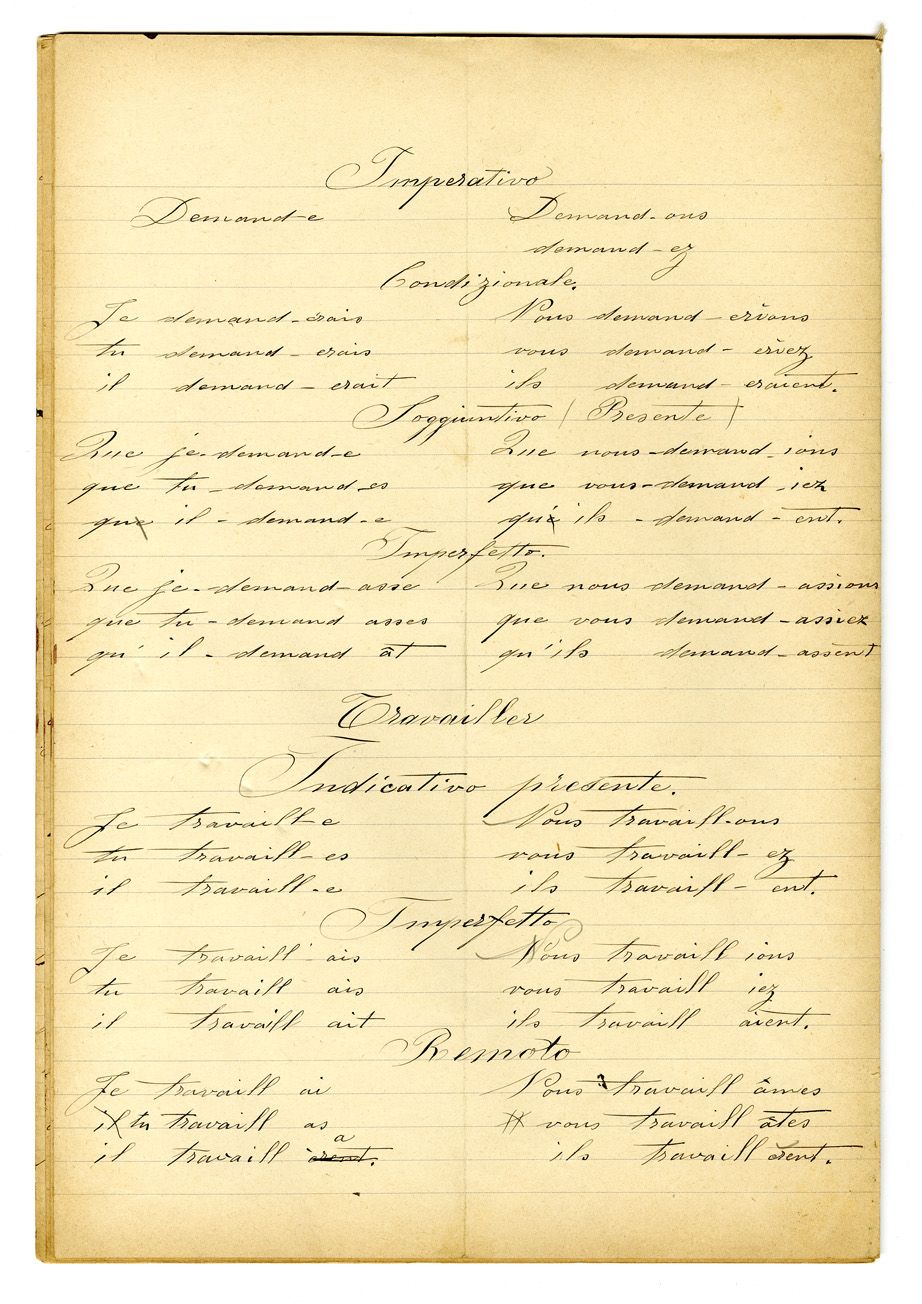 Imperativo
Demand-e Demand-ons
demand-ez
Condizionale.
Je demand-erais Nous demand-erions
tu demand-erais vous demand-eriez
il demand-erait ils demand-eraient.
Soggiuntivo (Presente)
Que je-demand-e Que nous-demand-ions
que tu-demand-es que vous-demand-iez
que il-demand-e qu'ils-demand-ent.
Imperfetto.
Que je-demand-asse Que nous demand-assions
que tu-demand asses que vous demand-assiez
qu'il-demand ât qu'ils demand-assent
Travailler
Indicativo presente.
Je travaill-e Nous travaill-ons
tu travaill-es vous travaill-ez
il travaill-e ils travaill-ent.
Imperfetto
Je travaill-ais Nous travaill ions
tu travaill ais vous travaill iez
il travaill ait ils travaill aient.
Remoto
Je travaill ai Nous travaill âmes
il tu travaill as vous travaill âtes
il travaill èrent. a ils travaill èrent.